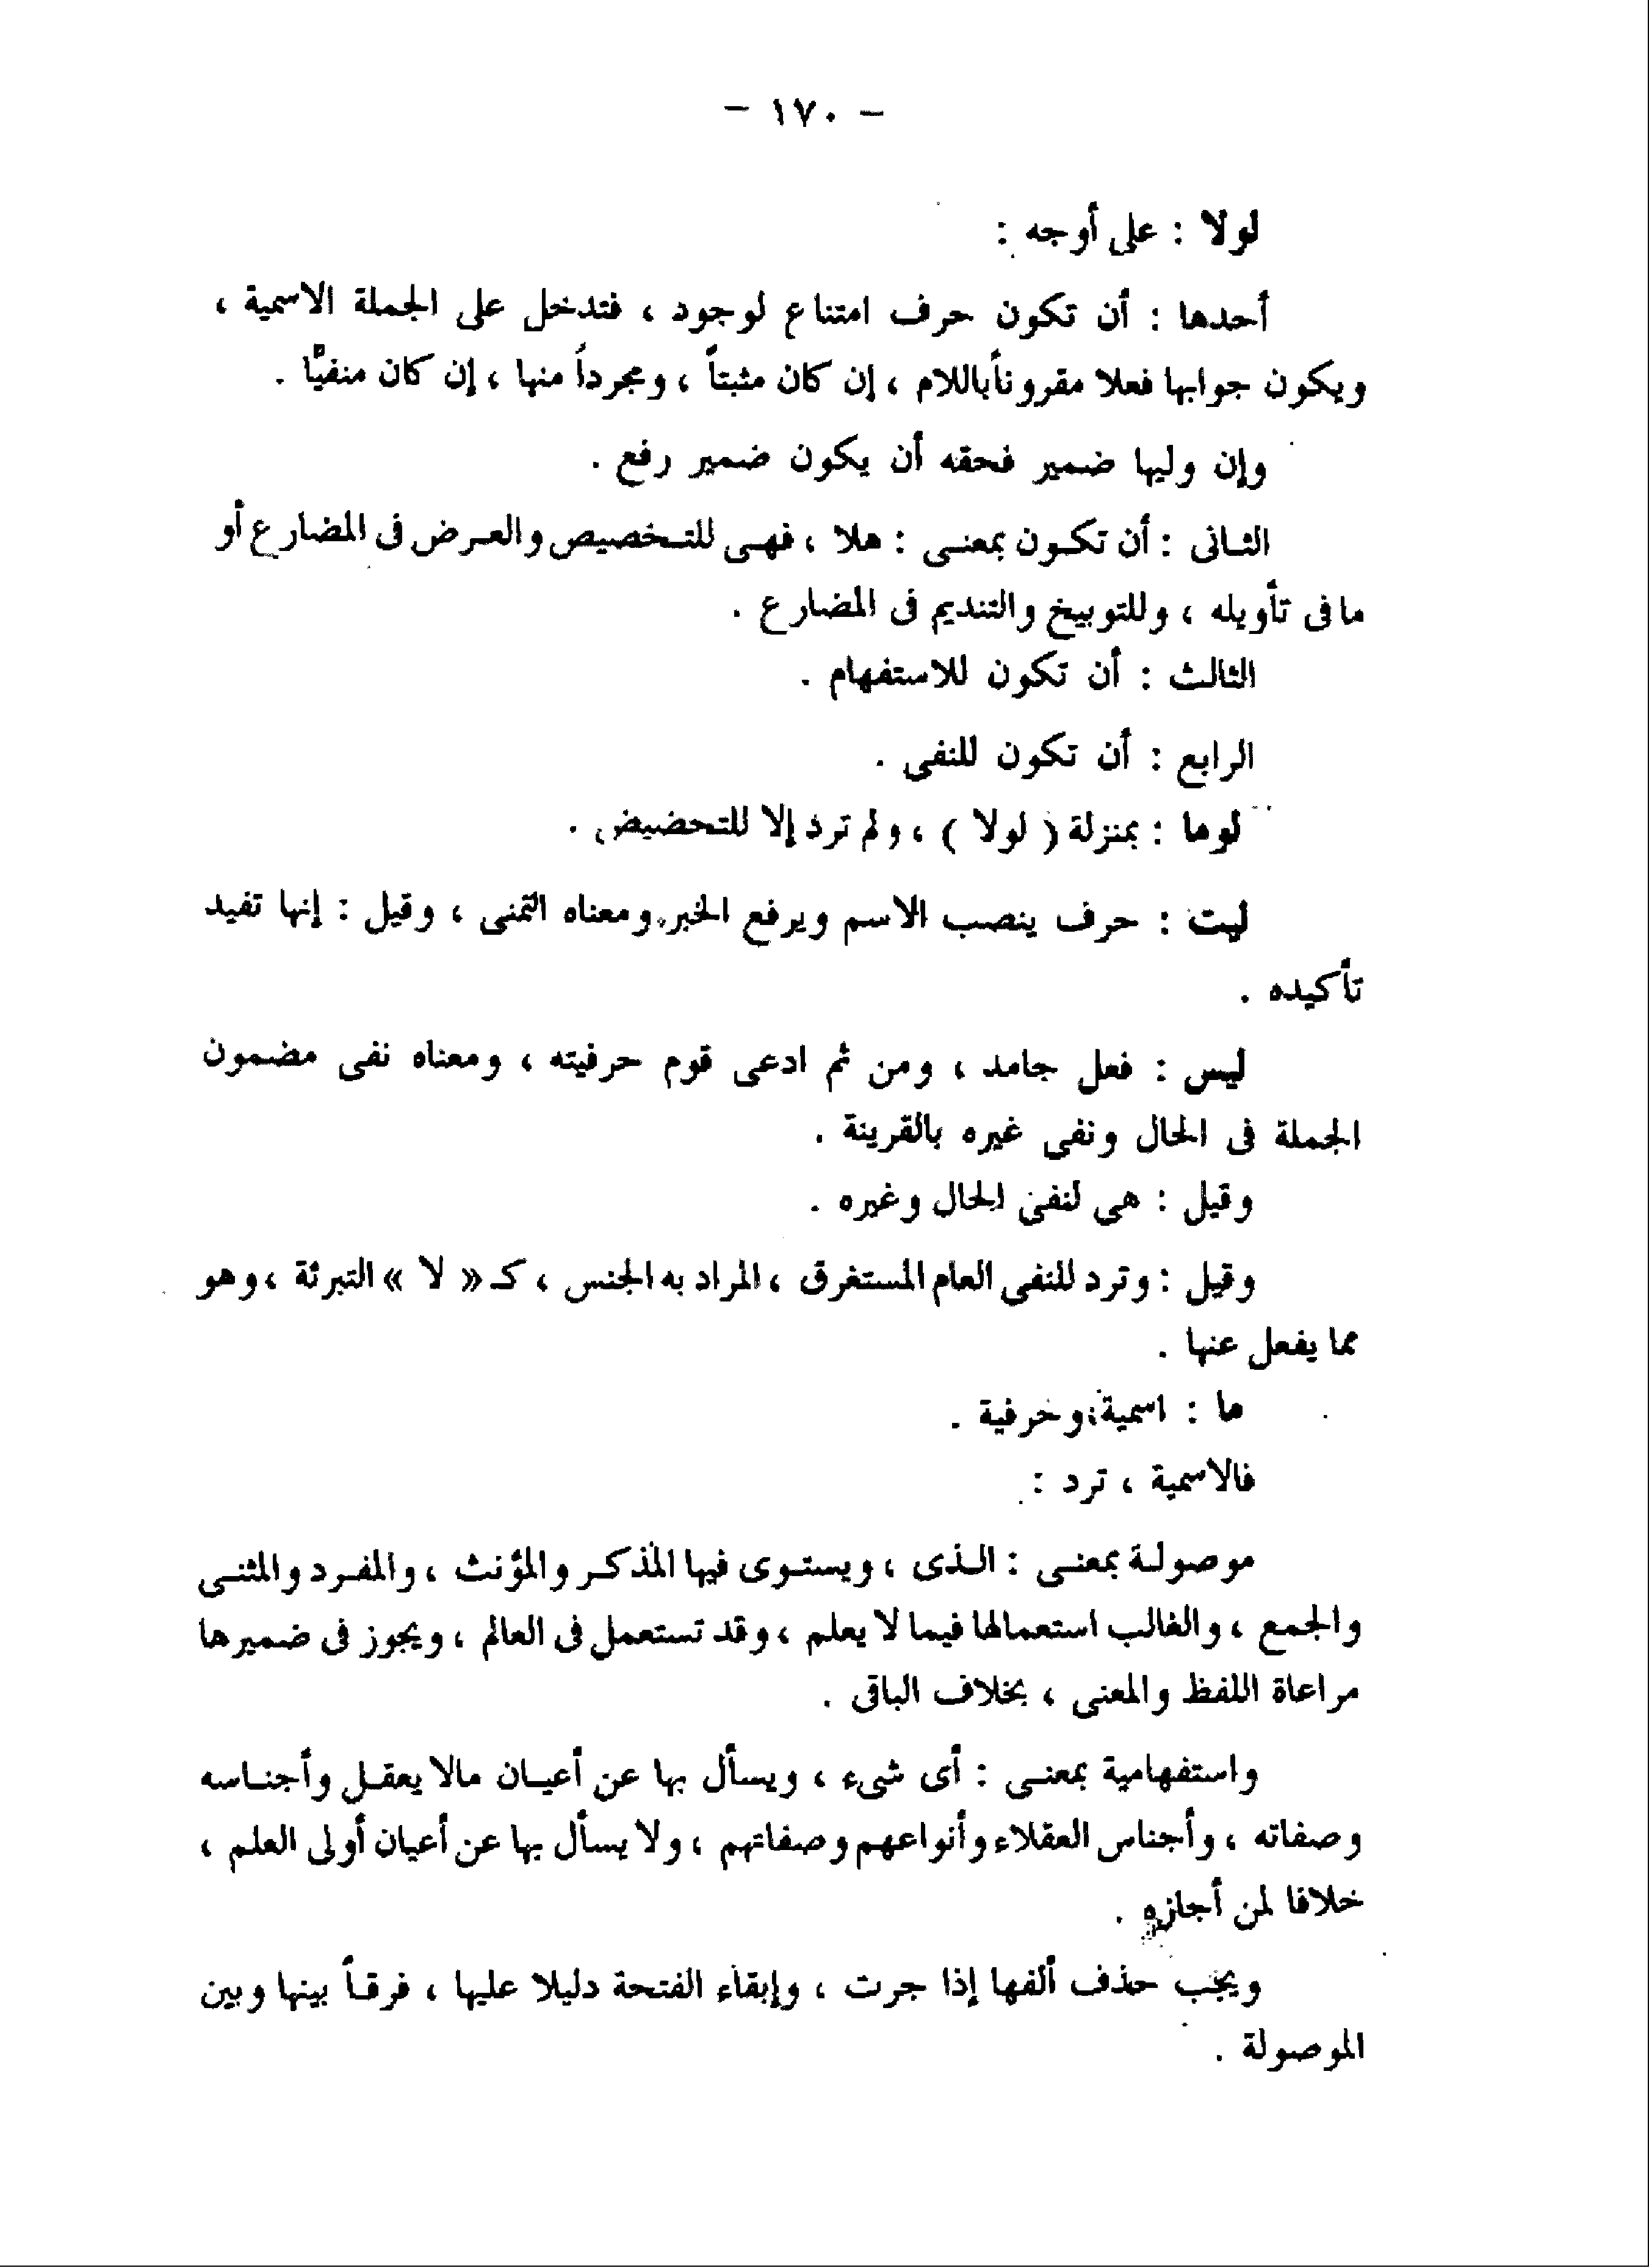 - ١٧٠ -
لولا : على أوجه :
أحدها : أن تكون حرف امتناع لوجود ، فتدخل على الجملة الاسمية ،
ويكون جوابها فعلا مقروناًباللام ، إن كان مثبتاً ، ومجرداً منها ، إن كان منفيًّا .
وإن وليها ضمير فحقه أن يكون ضمير رفع .
الثانى : أن تكون بمعنى : هلا ، فهى للتخصيص والعرض فى المضارع أو
مافى تأويله ، وللتوبيخ والتنديم فى المضارع .
الثالث : أن تكون للاستفهام .
الرابع : أن تكون للنفى .
لوما : بمنزلة ( لولا ) ، ولم ترد إلا للتحضيض .
ليت : حرف ينصب الاسم ويرفع الخبر ومعناه التمنى ، وقيل : إنها تفيد
تأكيده .
ليس : فعل جامد ، ومن ثم ادعى قوم حرفيته ، ومعناه نفى مضمون
الجملة فى الحال ونفى غيره بالقرينة .
وقيل : هى لنفى الحال وغيره .
وقيل : وترد للنفى العام المستغرق ، المراد به الجنس ، كـ « لا » التبرئة ، وهو
مما يفعل عنها .
ما : اسمية وحرفية .
فالاسمية ، ترد :
موصولة بمعنى : الذى ، ويستوى فيها المذكر والمؤنث ، والمفرد والمثنى
والجمع ، والغالب استعمالها فيما لا يعلم ، وقد تستعمل فى العالم ، ويجوز فى ضميرها
مراعاة اللفظ والمعنى ، بخلاف الباقى .
واستفهامية بمعنى : أى شىء ، ويسأل بها عن أعيان مالا يعقل وأجناسه
وصفاته ، وأجناس العقلاء وأنواعهم وصفاتهم ، ولا يسأل بها عن أعيان أولى العلم ،
خلافا لمن أجازه .
ويجب حذف ألفها إذا جرت ، وإبقاء الفتحة دليلا عليها ، فرقاً بينها وبين
الموصولة .